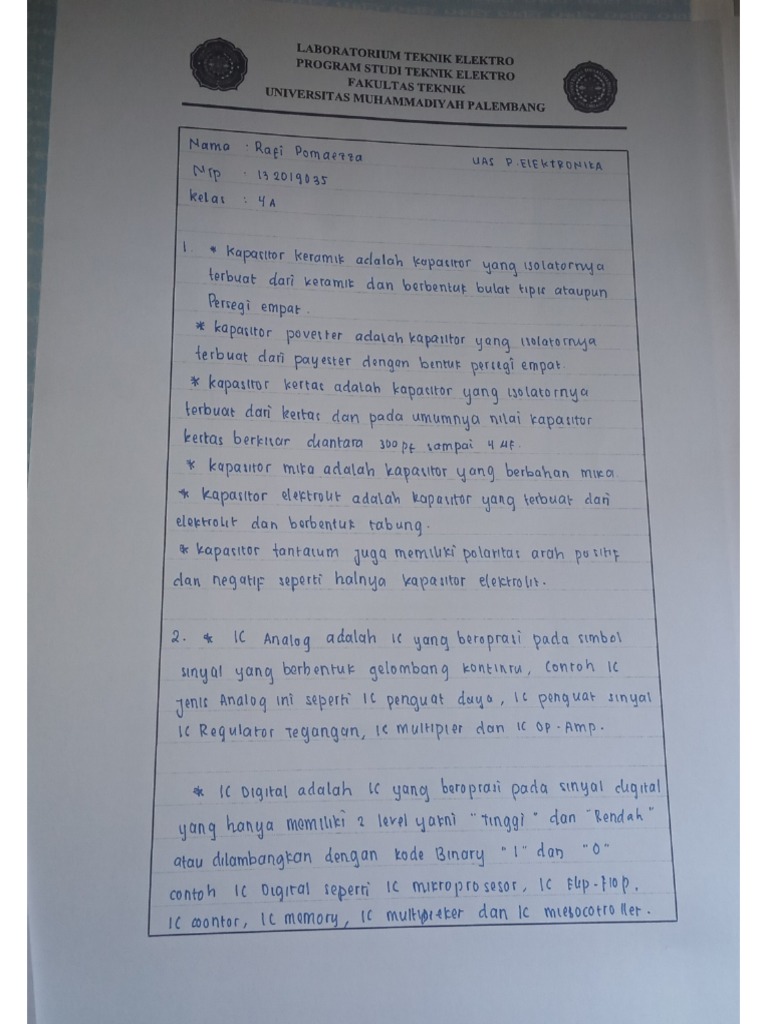 LABORATORIUM TEKNIK ELEKTRO
PROGRAM STUDI TEKNIK ELEKTRO
FAKULTAS TEKNIK
UNIVERSITAS MUHAMMADIYAH PALEMBANG
Nama : Rafi Pomaezza UAS P. ELEKTRONIKA
Nrp : 132019035
kelas : 4A
1. * Kapasitor keramik adalah kapasitor yang isolatornya
terbuat dari keramik dan berbentuk bulat tipis ataupun
Persegi empat.
* kapasitor povester adalah kapasitor yang isolatornya
terbuat dari payester dengan bentuk persegi empat.
* kapasitor kertas adalah kapasitor yang isolatornya
terbuat dari kertas dan pada umumnya nilai kapasitor
kertas berkisar diantara 300 pf sampai 4 µF.
* kapasitor mika adalah kapasitor yang berbahan mika
* kapasitor elektrolit adalah kapasitor yang terbuat dari
elektrolit dan berbentuk tabung.
* kapasitor tantarum juga memiliki polaritas arah positif
dan negatif seperti halnya kapasitor elektrolit.
2. * IC Analog adalah IC yang beroprasi pada simbol
sinyal yang berbentuk gelombang kontinru, Contoh IC
jenis Analog ini seperti IC penguat daya, IC penguat sinyal
IC Regulator Tegangan, IC multiplier dan IC OP-Amp.
* IC Digital adalah IC yang beroprasi pada sinyal digital
yang hanya memiliki 2 level yakni "Tinggi" dan "Rendah"
atau dilambangkan dengan kode Binary "1" dan "0"
contoh IC Digital seperti IC mikroprosesor, IC Flip-Flop,
IC coontor, IC memory, IC dan IC